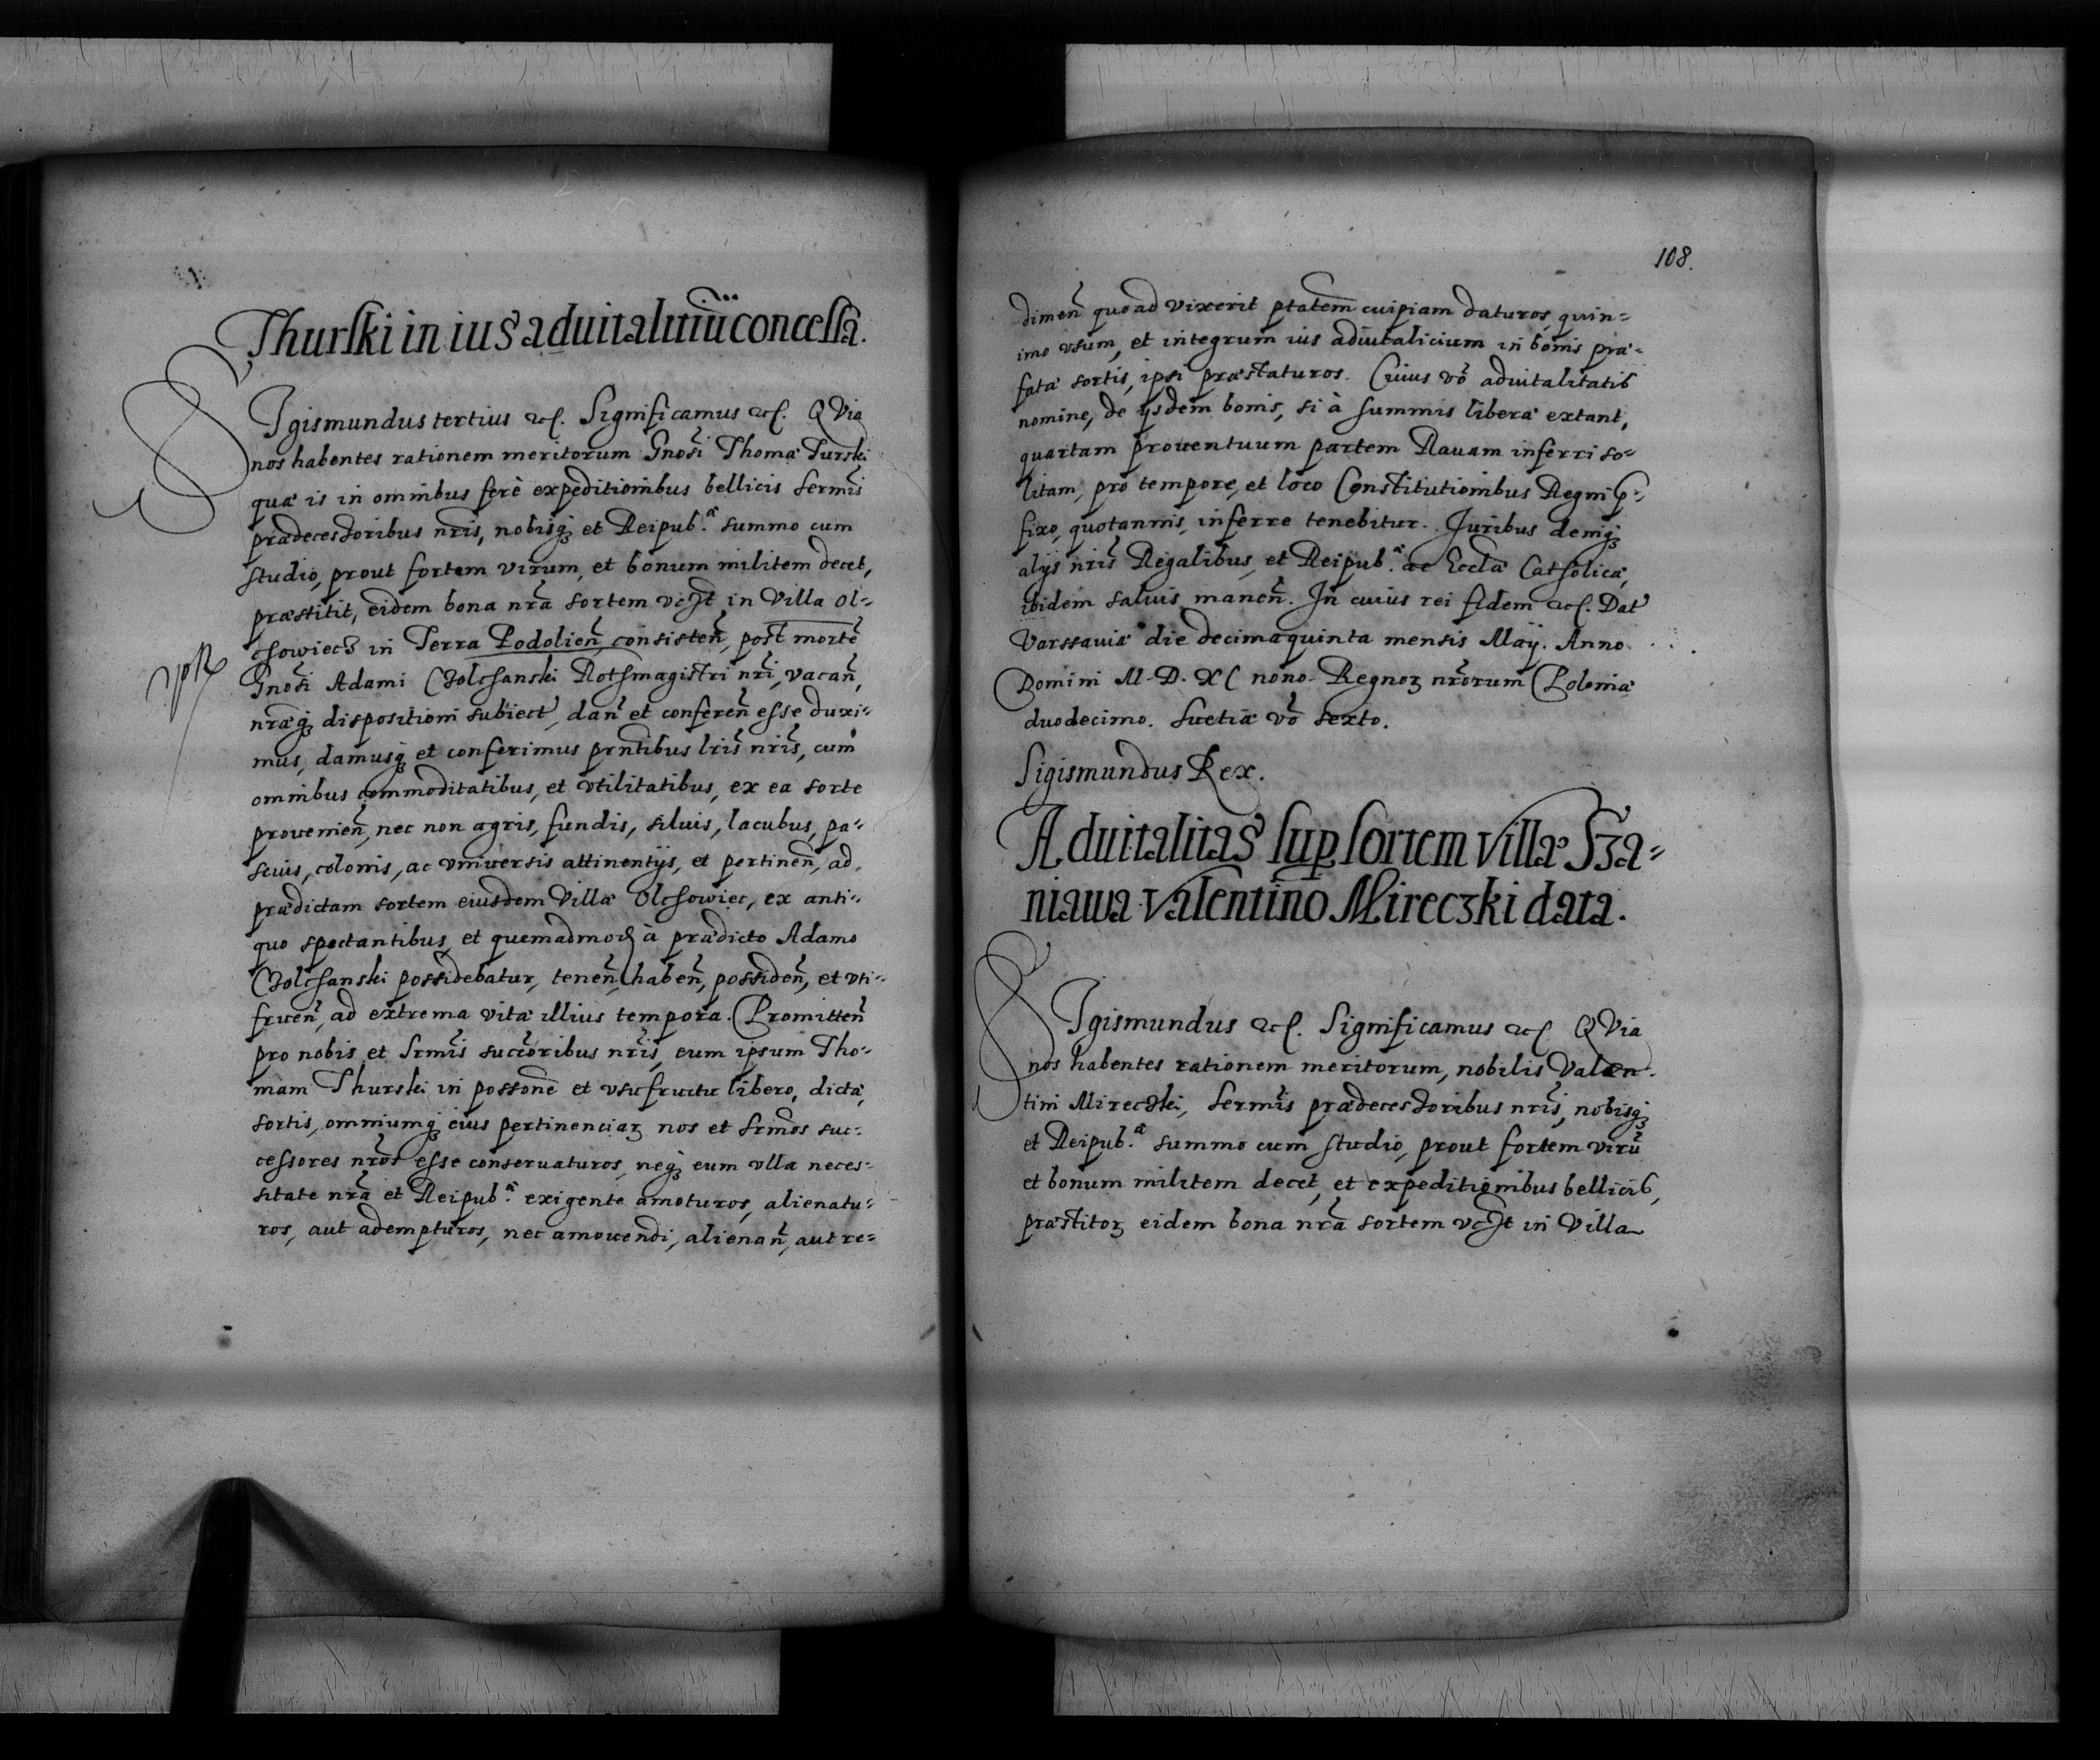 Thurski in ius aduitalitiũ concessa.
Sigismundus tertius etc. Significamus etc. QVia
nos habentes rationem meritorum Gnosi Thomæ Turski
quæ is in omnibus ferè expeditionibus bellicis Sermis
prædecessoribus nris, nobisq3 et Reipub.æ summo cum
studio, prout fortem virum, et bonum militem decet,
præstitit, eidem bona nra sortem vcзt in Villa Ol=
chowiecz in Terra Podolien consisten, post mortẽ
Gnosi Adami Golchanski Rothmagistri nri, vacan,
nræq3 dispositioni subiect, dan et conferen esse duxi=
mus, damusq3 et conferimus prntibus lris nris, cum
omnibus commoditatibus, et vtilitatibus, ex ea sorte
prouenien, nec non agris, fundis, siluis, lacubus, pa=
scuis, colonis, ac vniuersis attinentijs, et pertinen, ad
prædictam sortem eiusdem Villæ Olchowiec, ex anti=
quo spectantibus, et quemadmod à prædicto Adamo
Golchanski possidebatur, tenen, haben, possiden, et vti=
fruen, ad extrema vitæ illius tempora. Promitten
pro nobis et Srmis succoribus nris, eum ipsum Tho=
mam Thurski in possone et vsufructu libero, dictæ,
sortis, omniumq3 eius pertinenciaꝝ nos et Srmos suc=
cessores nros esse conseruaturos, neq3 eum vlla neces=
sitate nra et Reipub.æ exigente amoturos, alienatu=
ros, aut adempturos, nec amouendi, alienan, aut re=
108.
dimen quoad vixerit ptatem cuipiam daturos, quin=
imo vsum, et integrum ius aduitalicium in bonis præ=
fatæ sortis, ipsi præstaturos. Cuius vo aduitalitatis
nomine, de ijsdem bonis, si à summis libera extant,
quartam prouentuum partem Rauam inferri so=
litam, pro tempore, et loco Constitutionibus Regni p=
fixo, quotannis, inferre tenebitur. Juribus deniq3
alijs nris Regalibus, et Reipub.æ ac Ecclæ Catholicæ,
ibidem saluis manen. In cuius rei fidem etc. Dat
Varssauiæ die decimaquinta mensis Maij. Anno
Domini M. D. XC nono. Regnoꝝ nrorum Poloniæ
duodecimo. Suetiæ vo sexto.
Sigismundus Rex.
Aduitalitas sup sortem villæ Sza=
niawa Valentino Mireczki data.
Sigismundus etc. Significamus etc QVia
nos habentes rationem meritorum, nobilis Valen=
tini Mireczki, Sermis prædecessoribus nris, nobisq3
et Reipub.æ summo cum studio, prout fortem virũ
et bonum militem decet, et expeditionibus bellicis,
præstitoꝝ eidem bona nra sortem vcзt in Villa